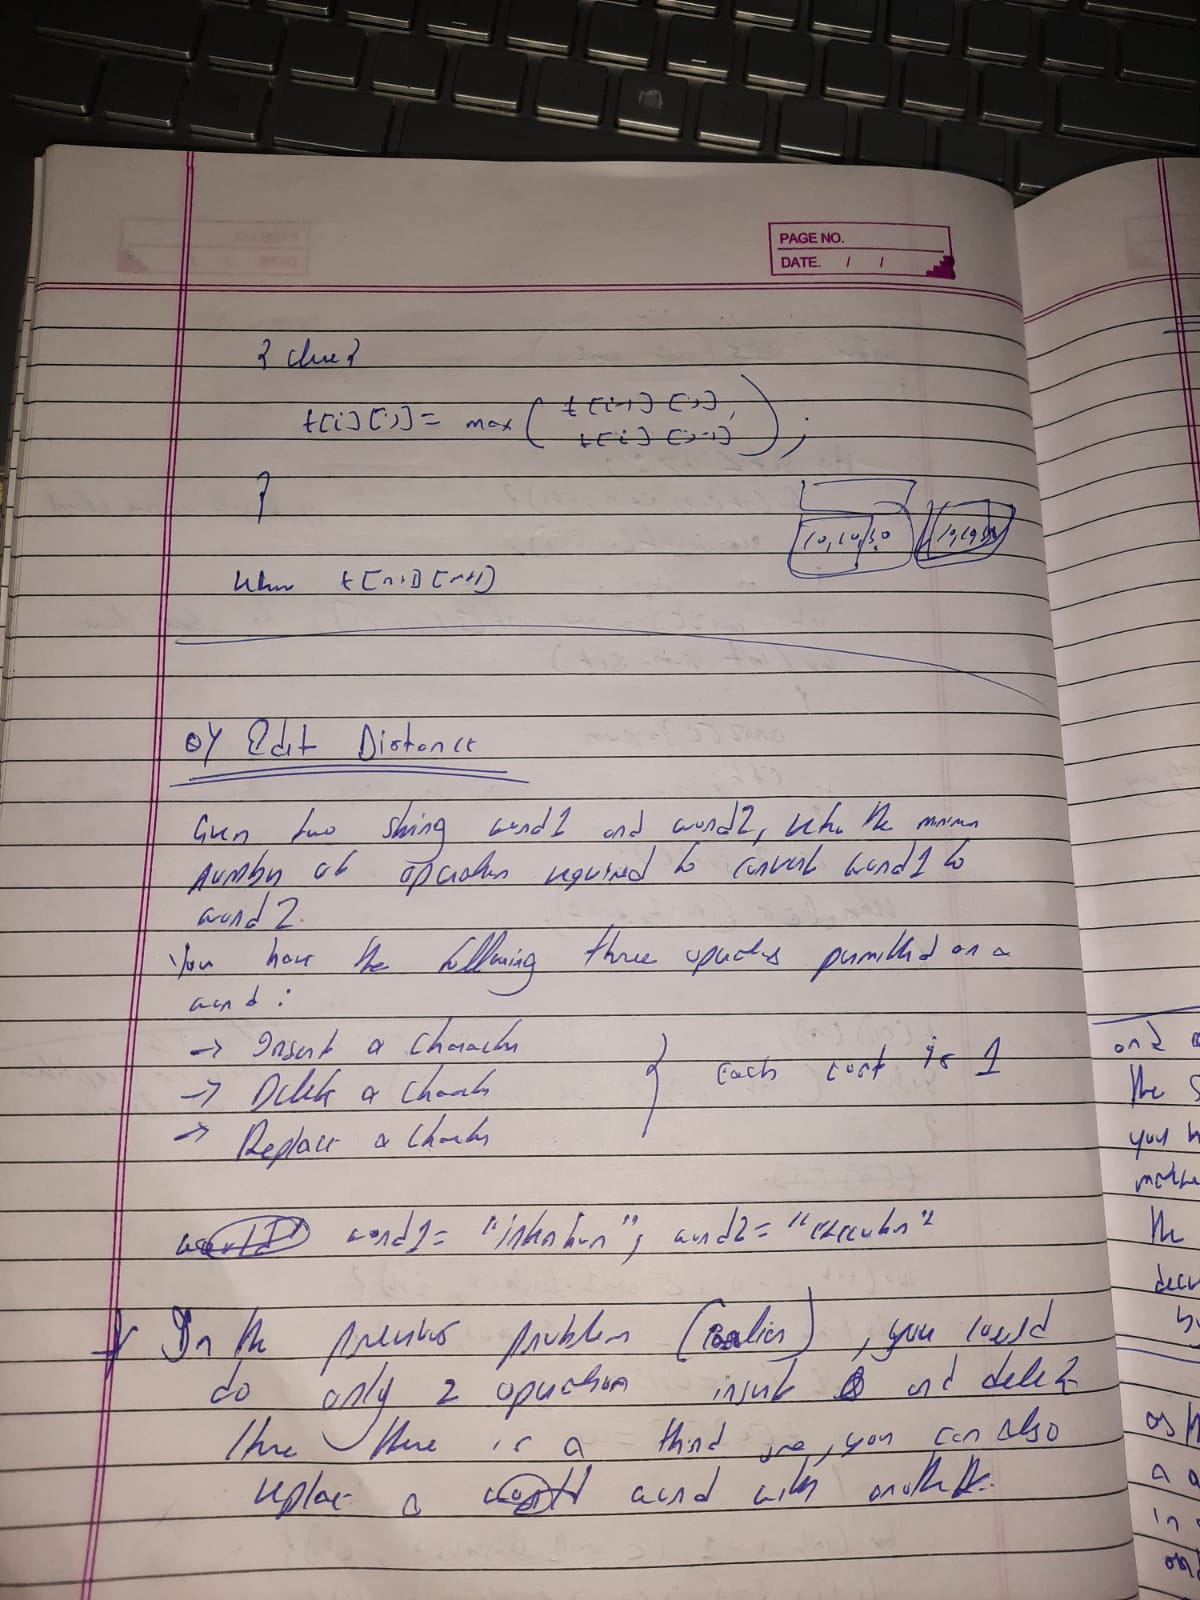 PAGE NO.
DATE. / /
} else {
t[i][j] = max ( t[i-1][j],
t[i][j-1] ) ;
}
return t[n+1][m+1]
10,10,30
Q) Edit Distance
Given two string word1 and word2, return the minimum
number of operation required to convert word1 to
word2.
You have the following three operations permitted on a
word :
→ Insert a character
→ Delete a character
→ Replace a character
} Each cost is 1
word1 = "intention"; word2 = "execution"
In the previous problem (earlier), you could
do only 2 operation insert and delete
Here there is a third one, you can also
replace a word with another.
and
the
you
the
in